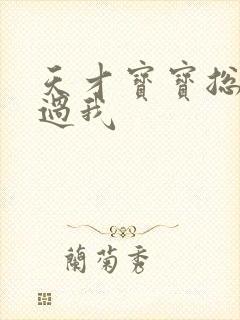 天才寶寶総
過我
蘭菊秀